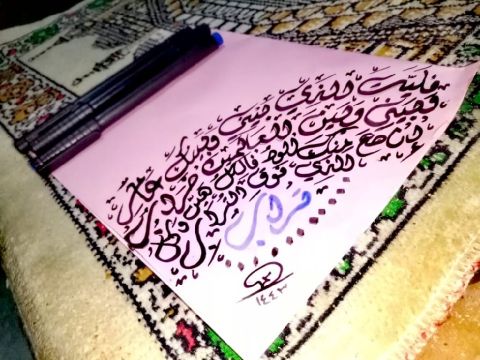 فليت الذي بيني وبينك عامر
وبيني وبين العالمين خراب
إن صح منك الود فالكل هين وكل
الذي فوق التراب
تراب
١٤٤٣